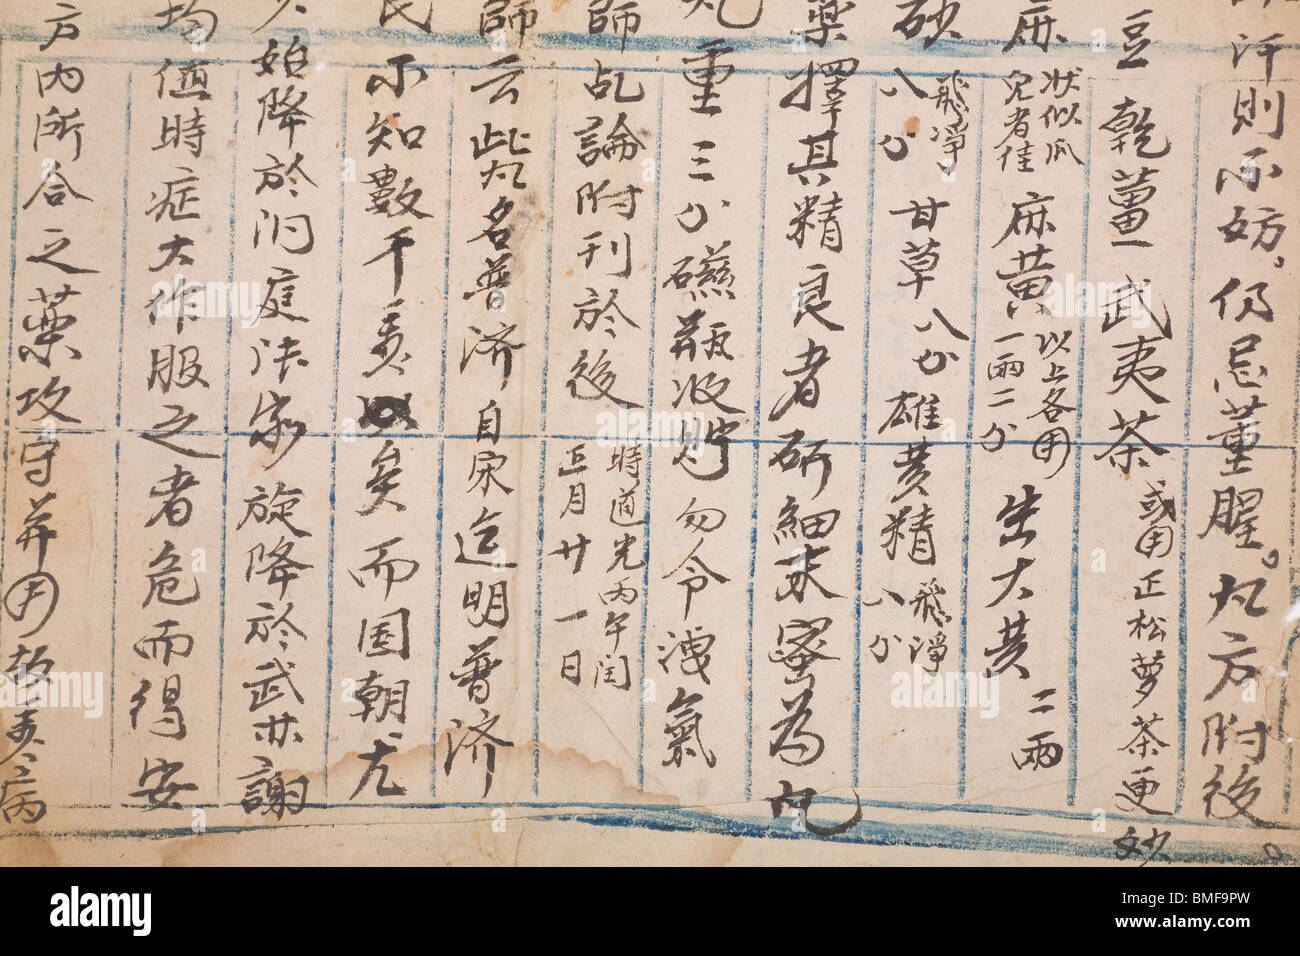 汗則不妨，仍忌葷腥。丸方附後。
豆 乾薑 武夷茶 或用正松蘿茶更妙
麻 狀似瓜兒者佳 麻黃 以上各用一兩二分 生大黃 二兩
砂 八分 飛淨 甘草 八分 雄黃精 飛淨 八分
藥擇其精良者研細末蜜為丸
丸重三分磁瓶收貯勿令洩氣
師乩論附刊於後 時道光丙午閏正月廿一日
師云此丸名普濟自宋迄明普濟
民不知數千矣而国朝尤
始降於洞庭法家旋降於武林謝
均値時症大作服之者危而得安
方內所合之藥攻守并用故病
alamy
Image ID: BMF9PW
www.alamy.com